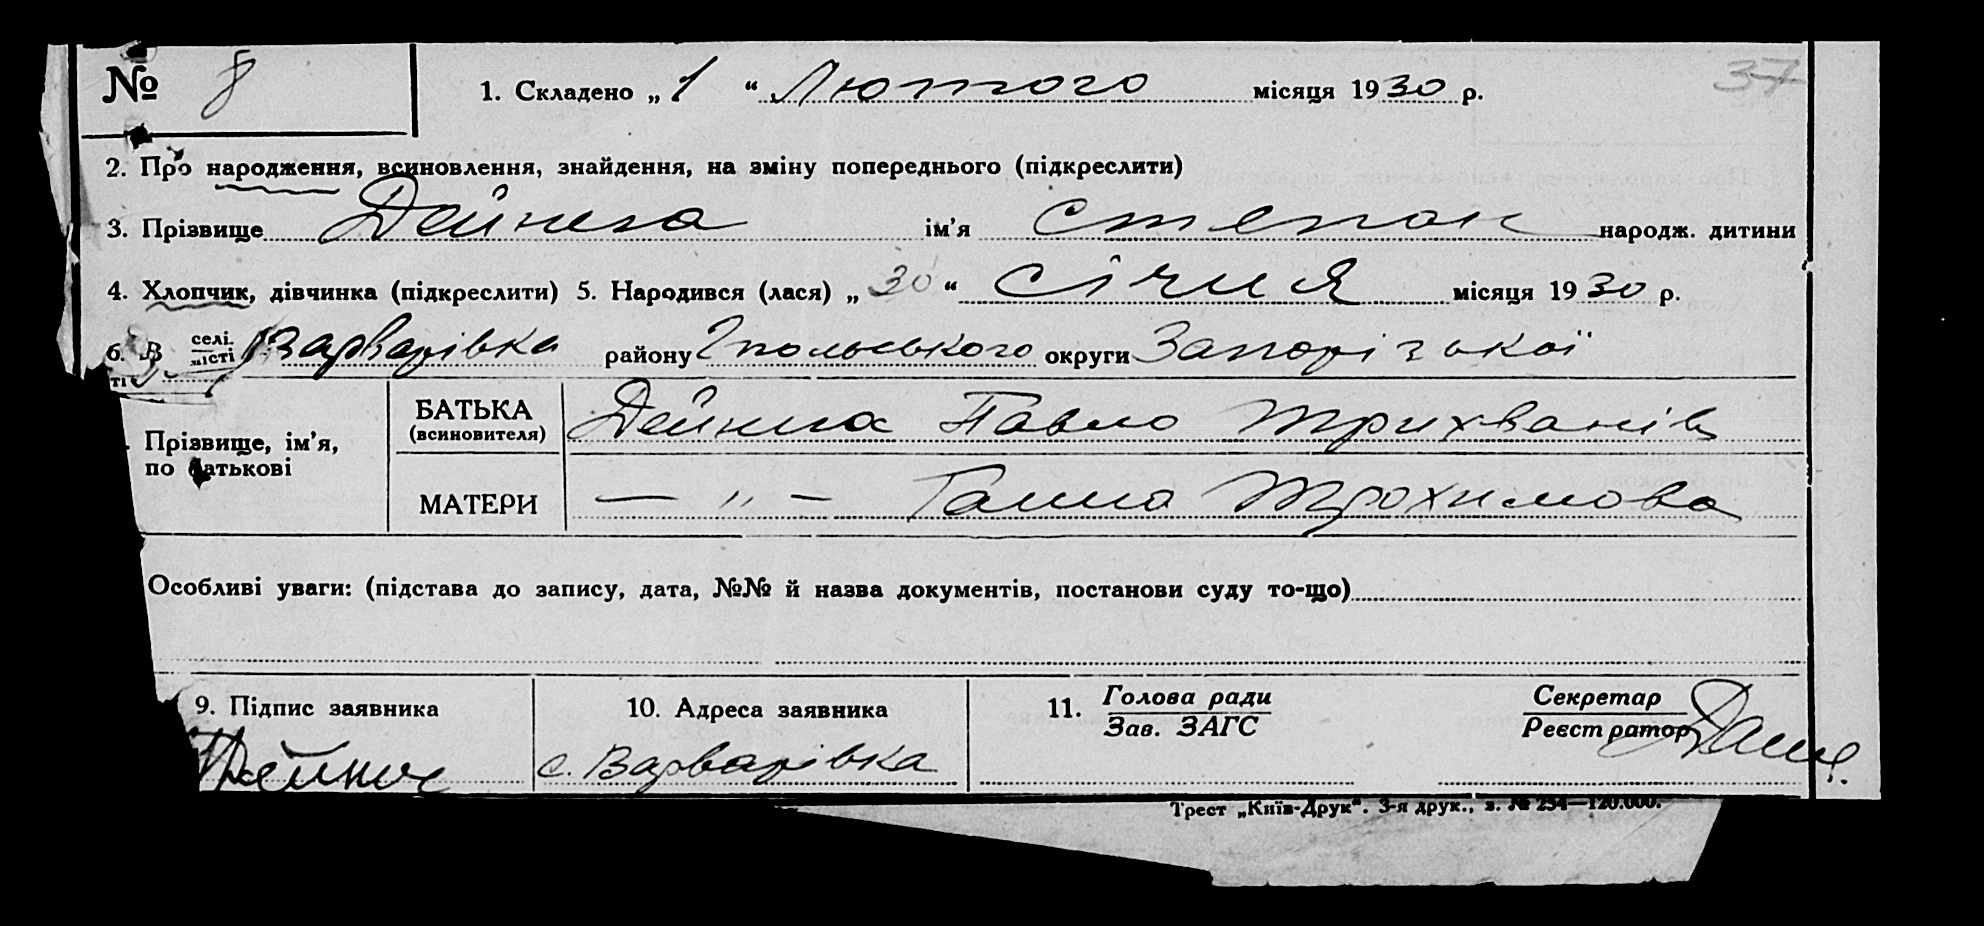 № 8 1. Складено „1“ Лютого місяця 1930 р. 37
2. Про народження, всиновлення, знайдення, на зміну попереднього (підкреслити)
3. Прізвище Дейнега ім’я Степан народж. дитини
4. Хлопчик, дівчинка (підкреслити) 5. Народився (лася) „30“ Січня місяця 1930 р.
6. В селі місті Варварівка району Гпольського округи Запорізької
Прізвище, ім’я, по батькові
БАТЬКА (всиновителя) Дейнега Павло Трихванів
МАТЕРИ — „ — Ганна Трохимова
Особливі уваги: (підстава до запису, дата, №№ й назва документів, постанови суду то-що)
9. Підпис заявника 10. Адреса заявника 11. Голова ради Секретар
Зав. ЗАГС Реєстратор
с. Варварівка
Трест „Київ-Друк“. 3-я друк., з. № 254—120.000.